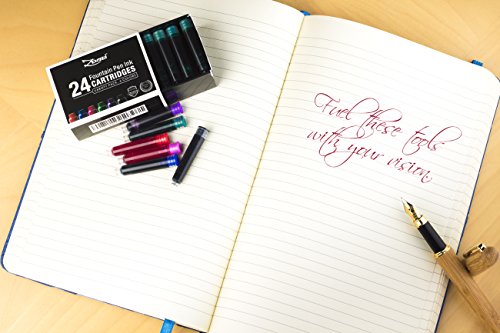 Zenzoi
24 Fountain Pen Ink
CARTRIDGES
Fuel these tools
with your vision